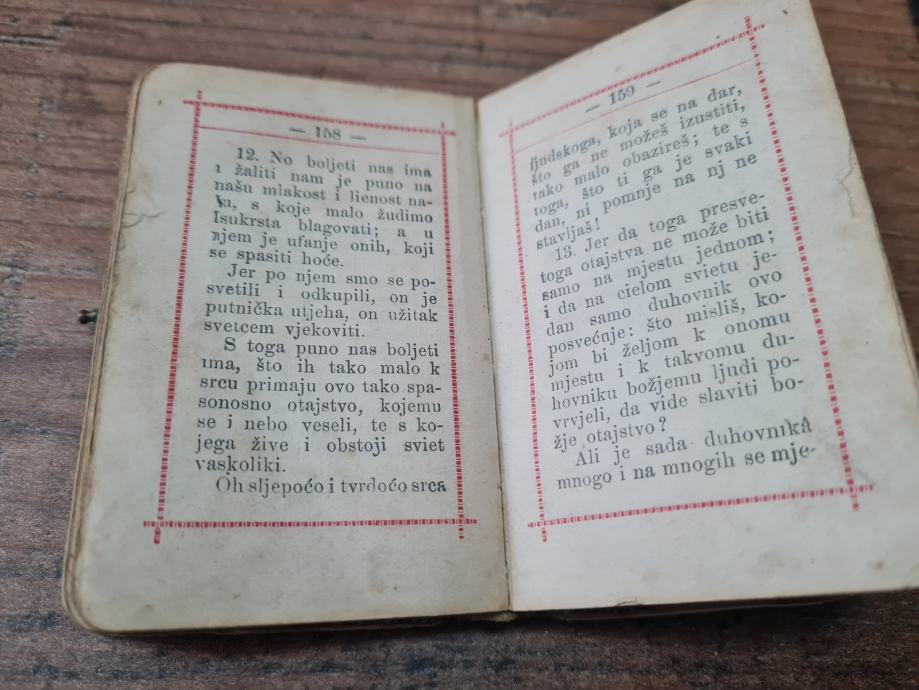 — 158 —
12. No boljeti nas ima
i žaliti nam je puno na
našu mlakost i lienost na-
ku, s koje malo žudimo
Isukrsta blagovati; a u
njem je ufanje onih, koji
se spasiti hoće.
Jer po njem smo se po-
svetili i odkupili, on je
putnička utjeha, on užitak
svetcem vjekoviti.
S toga puno nas boljeti
ima, što ih tako malo k
srcu primaju ovo tako spa-
sonosno otajstvo, kojemu
se i nebo veseli, te s ko-
jega žive i obstoji sviet
vaskoliki.
Oh sljepoćo i tvrdoćo srca
— 159 —
ljudskoga, koja se na dar,
što ga ne možeš izustiti,
tako malo obazireš; te s
toga, što ti ga je svaki
dan, ni pomnje na nj ne
stavljaš!
13. Jer da toga presve-
toga otajstva ne može biti
samo na mjestu jednom;
i da na cielom svietu je-
dan samo duhovnik ovo
posvećuje: što misliš, ko-
jom bi željom k onomu
mjestu i k takvomu du-
hovniku božjemu ljudi po-
vrvjeli, da vide slaviti bo-
žje otajstvo?
Ali je sada duhovnikâ
mnogo i na mnogih se mje-